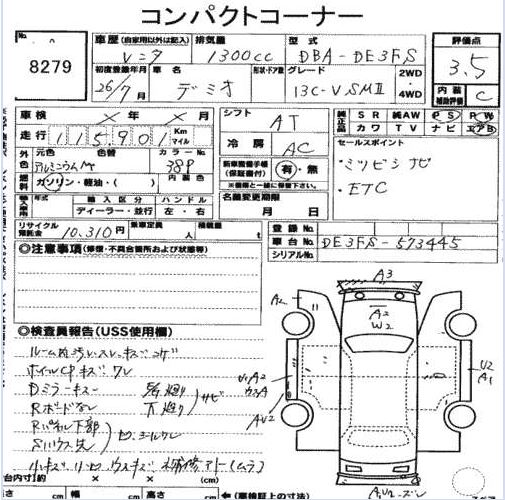 コンパクトコーナー
No. 8279
車歴 (自家用以外は記入) レンタ 排気量 1300cc 型式 DBA-DE3FS 評価点 3.5
初度登録年月 26/7月 車名 デミオ 形状・ドア数 グレード 13C-V SMⅡ 2WD・4WD 内装補助評価 C
車検 × 年 × 月 シフト AT 純正品 SR 純AW PS PW
走行 115,901 Km マイル 冷房 AC カワ TV ナビ エアB
外色 元色 アルミニウムM 色替 カラーNo. 38P 新車整備手帳(保証書付) 有・無 セールスポイント
燃料 ガソリン・軽油・( ) 内装色 ※書類と一緒に保管下さい。 ・ミツビシナビ
年式 輸入区分 ディーラー・並行 ハンドル 左・右 名義変更期限 月 日 ・ETC
リサイクル預託金 10,310円 乗車定員 人 積載量 t 登録No.
◎注意事項 (修復・不具合箇所および状態等) 車台No. DE3FS-573445
シリアルNo.
A3
A2
A2
W2
◎検査員報告(USS使用欄)
ルーム内汚レ スレ キズ コゲ
ホイルCPキズ ワレ
Dミラーキズ
Rボードなし 下廻り サビ
Rパネル下部
U2
A1
AU2
小キズ 小凹 ウスキズ 補修アト(ムラ)
台内寸 × ×
幅 cm 高さ cm (車検証上の寸法)